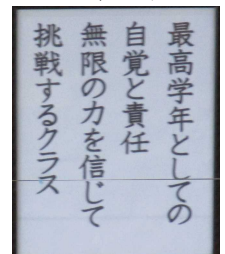 最高学年としての
自覚と責任
無限の力を信じて
挑戦するクラス